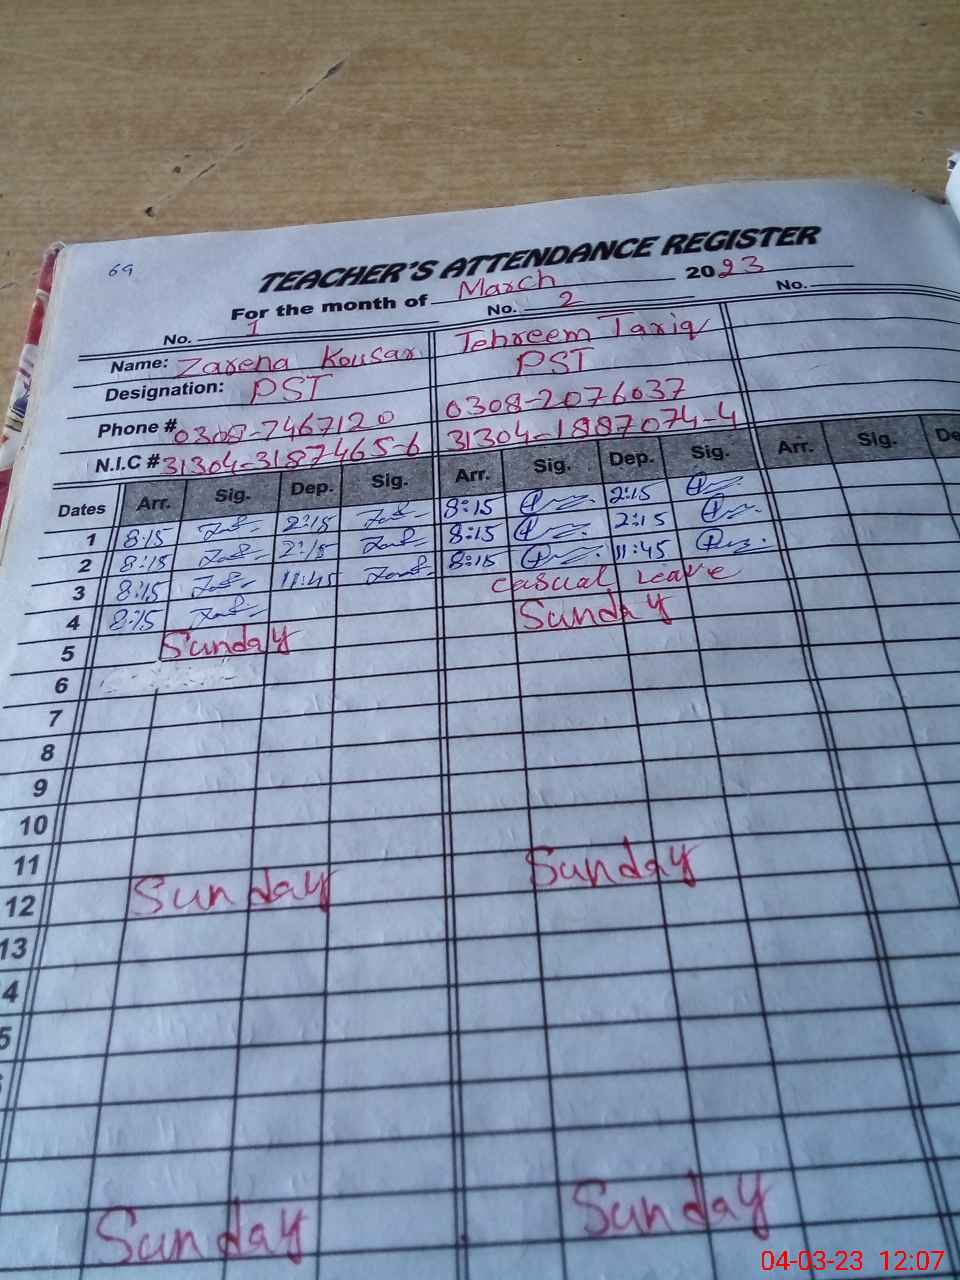 69
TEACHER'S ATTENDANCE REGISTER
For the month of March 2023
No. 1 No. 2 No.
Name: Zarena Kousar Tehreem Tariq
Designation: PST PST
Phone # 0308-7467120 0308-2076037
N.I.C # 31304-3187465-6 31304-1887074-4
Dates Arr. Sig. Dep. Sig. Arr. Sig. Dep. Sig. Arr. Sig. De
1 8:15 2:15 8:15 2:15
2 8:15 2:15 8:15 2:15
3 8:15 11:45 8:15 11:45
4 8:15 Casual leave
5 Sunday Sunday
6
7
8
9
10
11
12 Sunday Sunday
13
4
5
Sunday Sunday
04-03-23 12:07